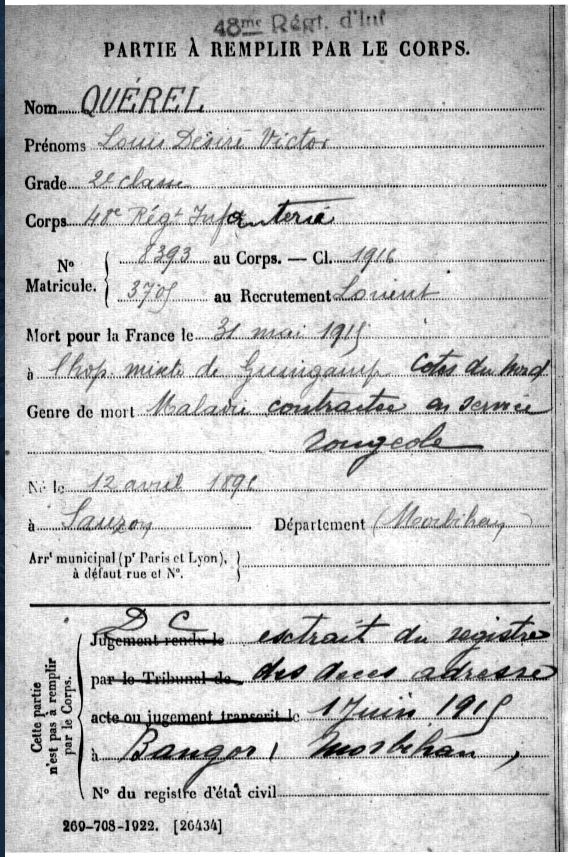 48me Régt. d'Inf
PARTIE À REMPLIR PAR LE CORPS.
Nom QUÉREL
Prénoms Louis Désiré Victor
Grade 2e classe
Corps 48e Régt Infanterie
No Matricule. 8393 au Corps. — Cl. 1916
3705 au Recrutement Lorient
Mort pour la France le 31 mai 1915
à l'hop. mixte de Guingamp Cotes du Nord
Genre de mort Maladie contractée en service
rougeole
Né le 12 avril 1896
à Sauzon Département (Morbihan)
Arrt municipal (pr Paris et Lyon),
à défaut rue et No.
Cette partie n'est pas à remplir par le Corps.
D C
Jugement rendu le extrait du registre
par le Tribunal de des deces adresse
acte ou jugement transcrit le 1 Juin 1915
à Bangor, Morbihan,
No du registre d'état civil
269-708-1922. [26434]